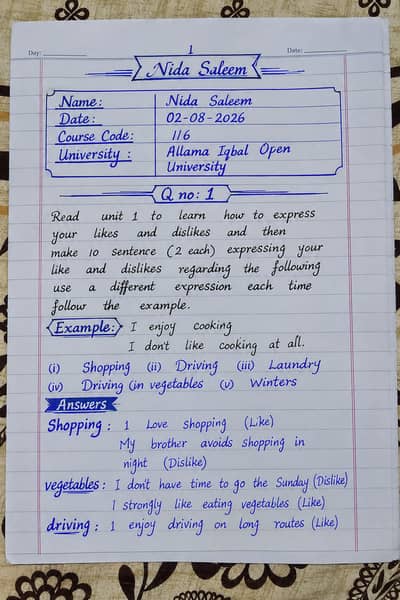 Day:
1
Date:
Nida Saleem
Name: Nida Saleem
Date: 02-08-2026
Course Code: 1/6
University : Allama Iqbal Open
University
Q no: 1
Read unit 1 to learn how to express
your likes and dislikes and then
make 10 sentence (2 each) expressing your
like and dislikes regarding the following
use a different expression each time
follow the example.
Example: I enjoy cooking
I don't like cooking at all.
(i) Shopping (ii) Driving (iii) Laundry
(iv) Driving (in vegetables (v) Winters
Answers
Shopping : 1 Love shopping (Like)
My brother avoids shopping in
night (Dislike)
vegetables : I don't have time to go the Sunday (Dislike)
I strongly like eating vegetables (Like)
driving : 1 enjoy driving on long routes (Like)